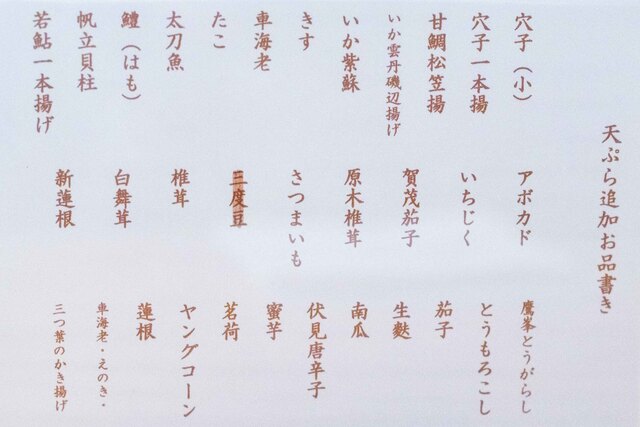 天ぷら追加お品書き
穴子（小）
穴子一本揚
甘鯛松笠揚
いか雲丹磯辺揚げ
いか紫蘇
きす
車海老
たこ
太刀魚
鱧（はも）
帆立貝柱
若鮎一本揚げ
アボカド
いちじく
賀茂茄子
原木椎茸
さつまいも
三度豆
椎茸
白舞茸
新蓮根
鷹峯とうがらし
とうもろこし
茄子
生麩
南瓜
伏見唐辛子
蜜芋
茗荷
ヤングコーン
蓮根
車海老・えのき・
三つ葉のかき揚げ